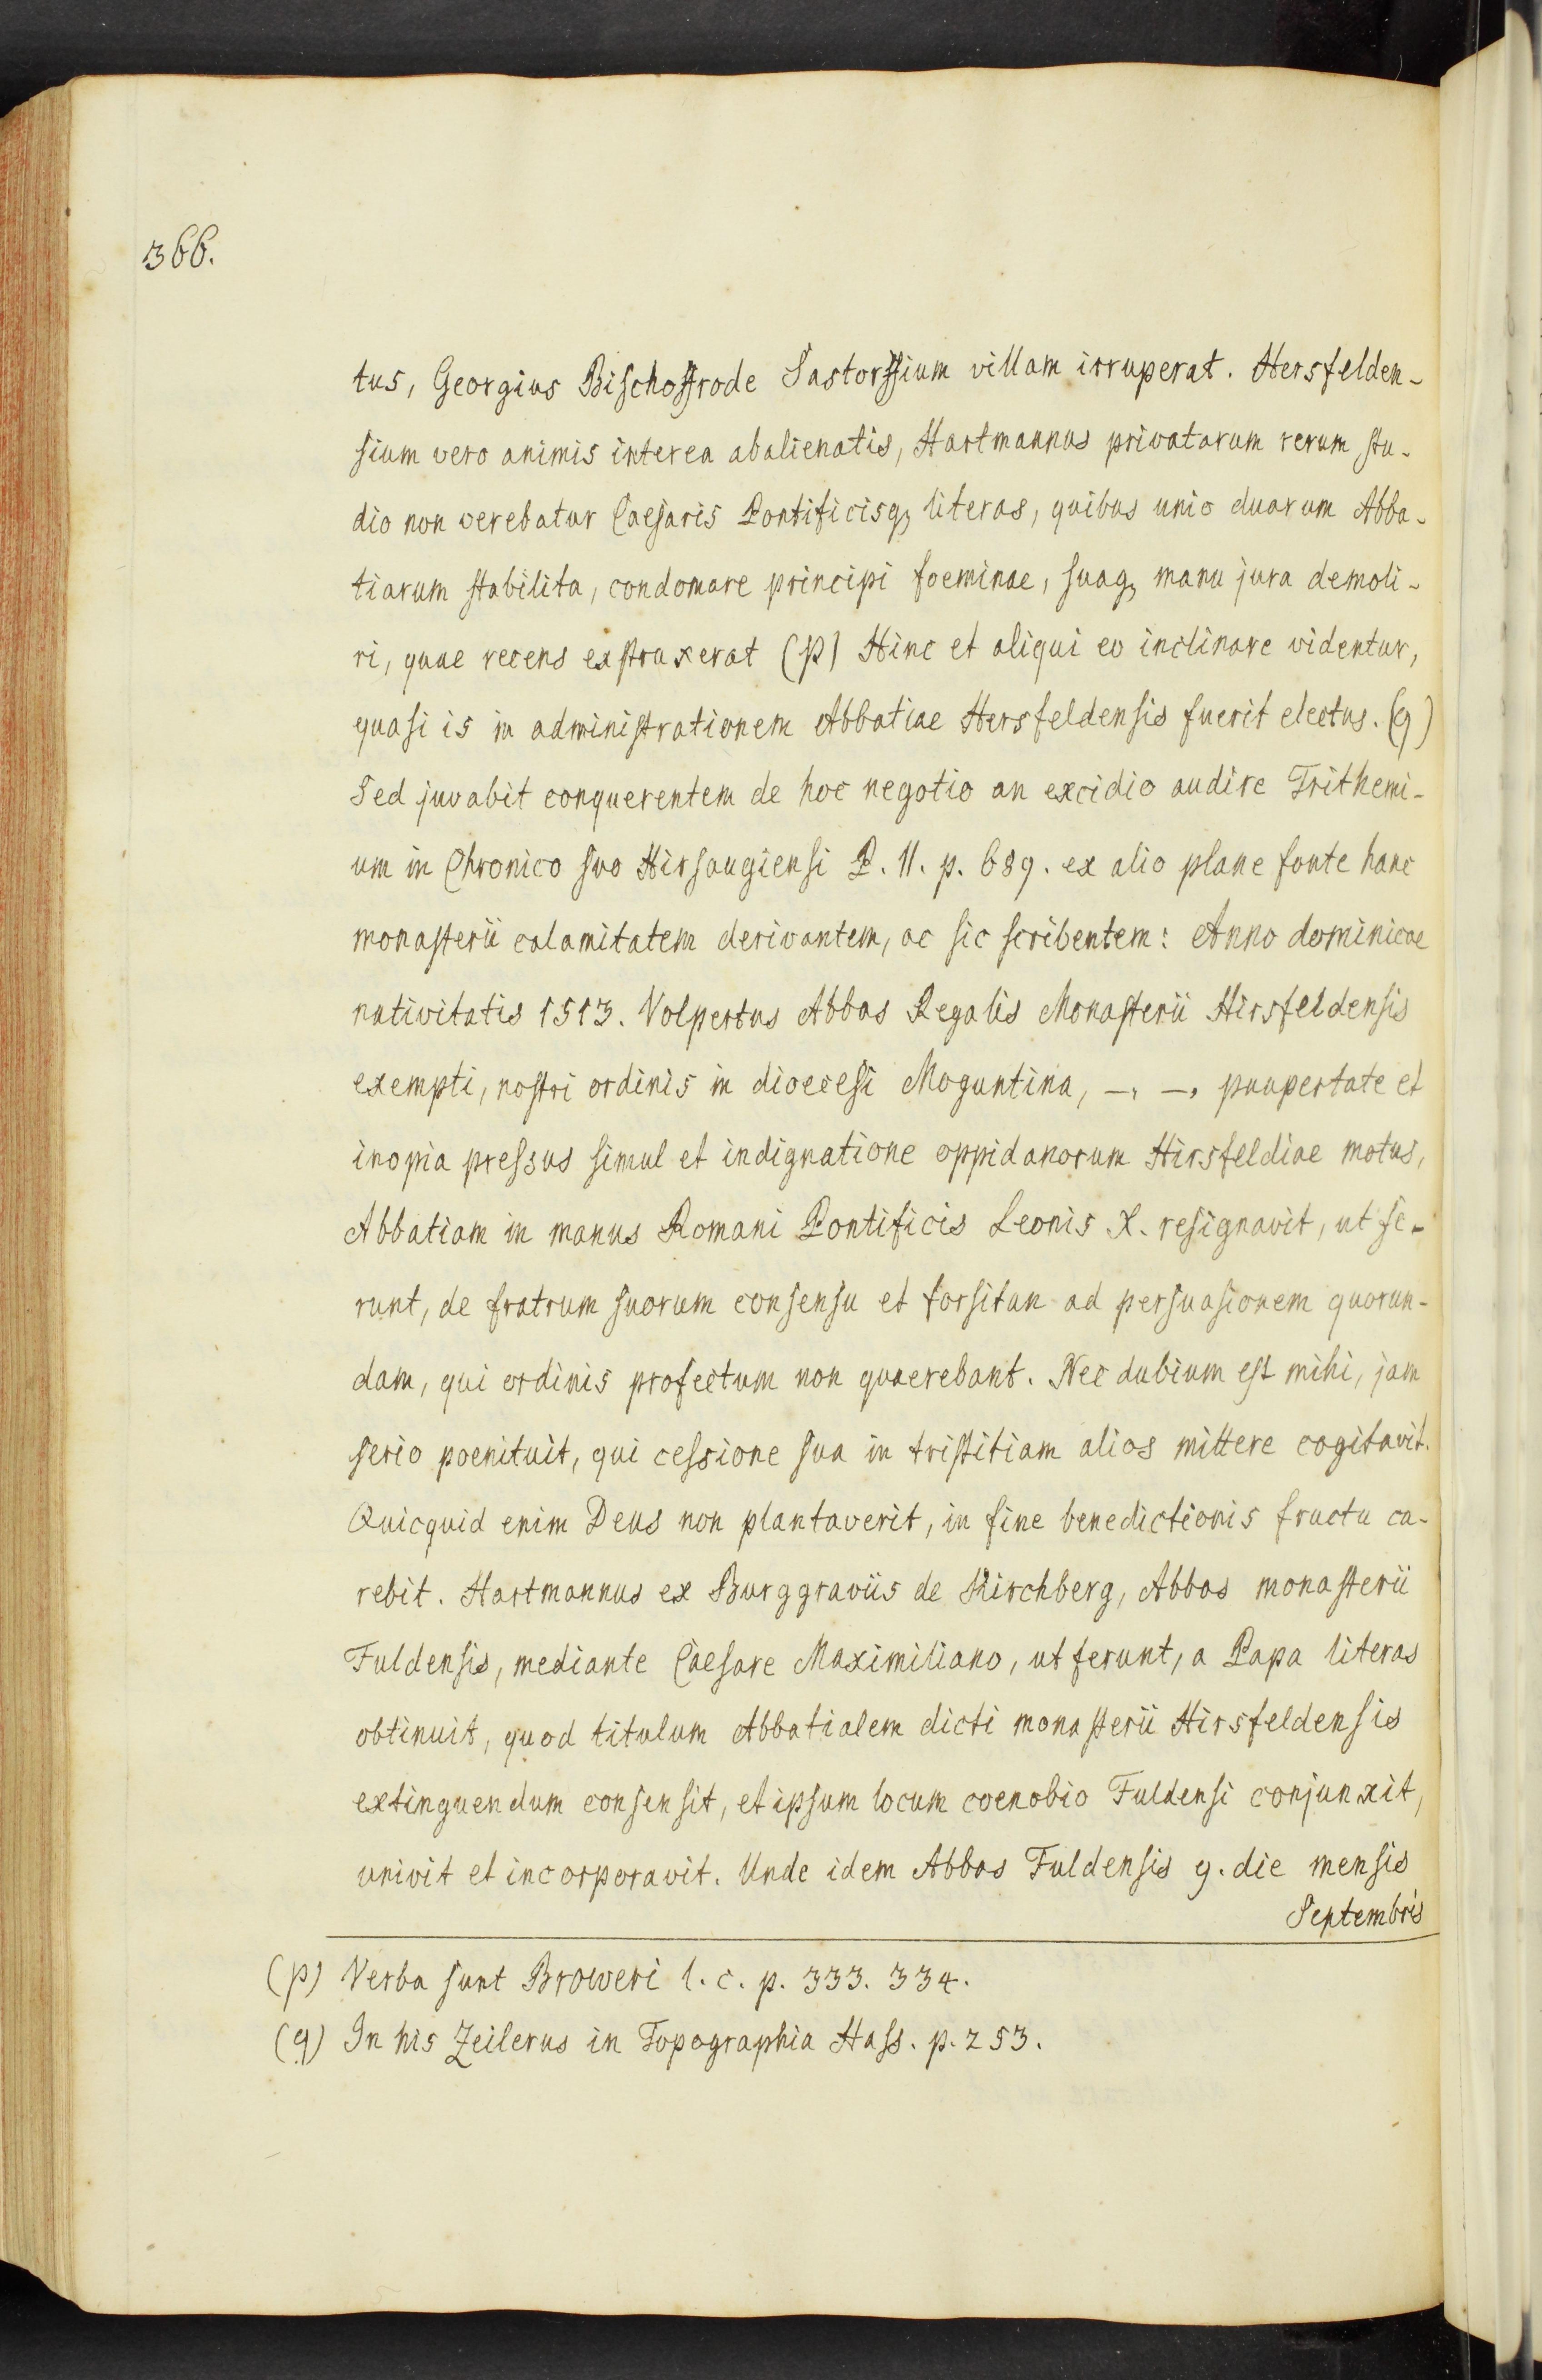 366.
tus, Georgius Bischoffrode Sastorffium villam irruperat. Hersfelden-
sium vero animis interea abalienatis, Hartmannus privatarum rerum stu-
dio non verebatur Caesaris Pontificisq, literas, quibus unio duarum Abba-
tiarum stabilita, condomare principi foeminae, suaq, manu jura demoli-
ri, quae recens exstruxerat (p) Hinc et aliqui eo inclinare videntur,
quasi is in administrationem Abbatiae Hersfeldensis fuerit electus. (q)
Sed juvabit conquerentem de hoc negotio an excidio audire Trithemi-
um in Chronico suo Hirsaugiensi P. II. p. 689. ex alio plane fonte hanc
monasterii calamitatem derivantem, ac sic scribentem: Anno dominicae
nativitatis 1513. Volpertus Abbas Regalis Monasterii Hirsfeldensis
exempti, nostri ordinis in dioecesi Moguntina, —, —, paupertate et
inopia pressus simul et indignatione oppidanorum Hirsfeldiae motus,
Abbatiam in manus Romani Pontificis Leonis X. resignavit, ut fe-
runt, de fratrum suorum consensu et forsitan ad persuasionem quorun-
dam, qui ordinis profectum non quaerebant. Nec dubium est mihi, jam
serio poenituit, qui cessione sua in tristitiam alios mittere cogitavit.
Quicquid enim Deus non plantaverit, in fine benedictionis fructu ca-
rebit. Hartmannus ex Burggraviis de Kirchberg, Abbas monasterii
Fuldensis, mediante Caesare Maximiliano, ut ferunt, a Papa literas
obtinuit, quod titulum Abbatialem dicti monasterii Hirsfeldensis
extinguendum consensit, et ipsum locum coenobio Fuldensi conjunxit,
univit et incorporavit. Unde idem Abbas Fuldensis 9. die mensis
Septembris
(p) Verba sunt Broweri l. c. p. 333. 334.
(q) In his Zeilerus in Topographia Hass. p. 253.